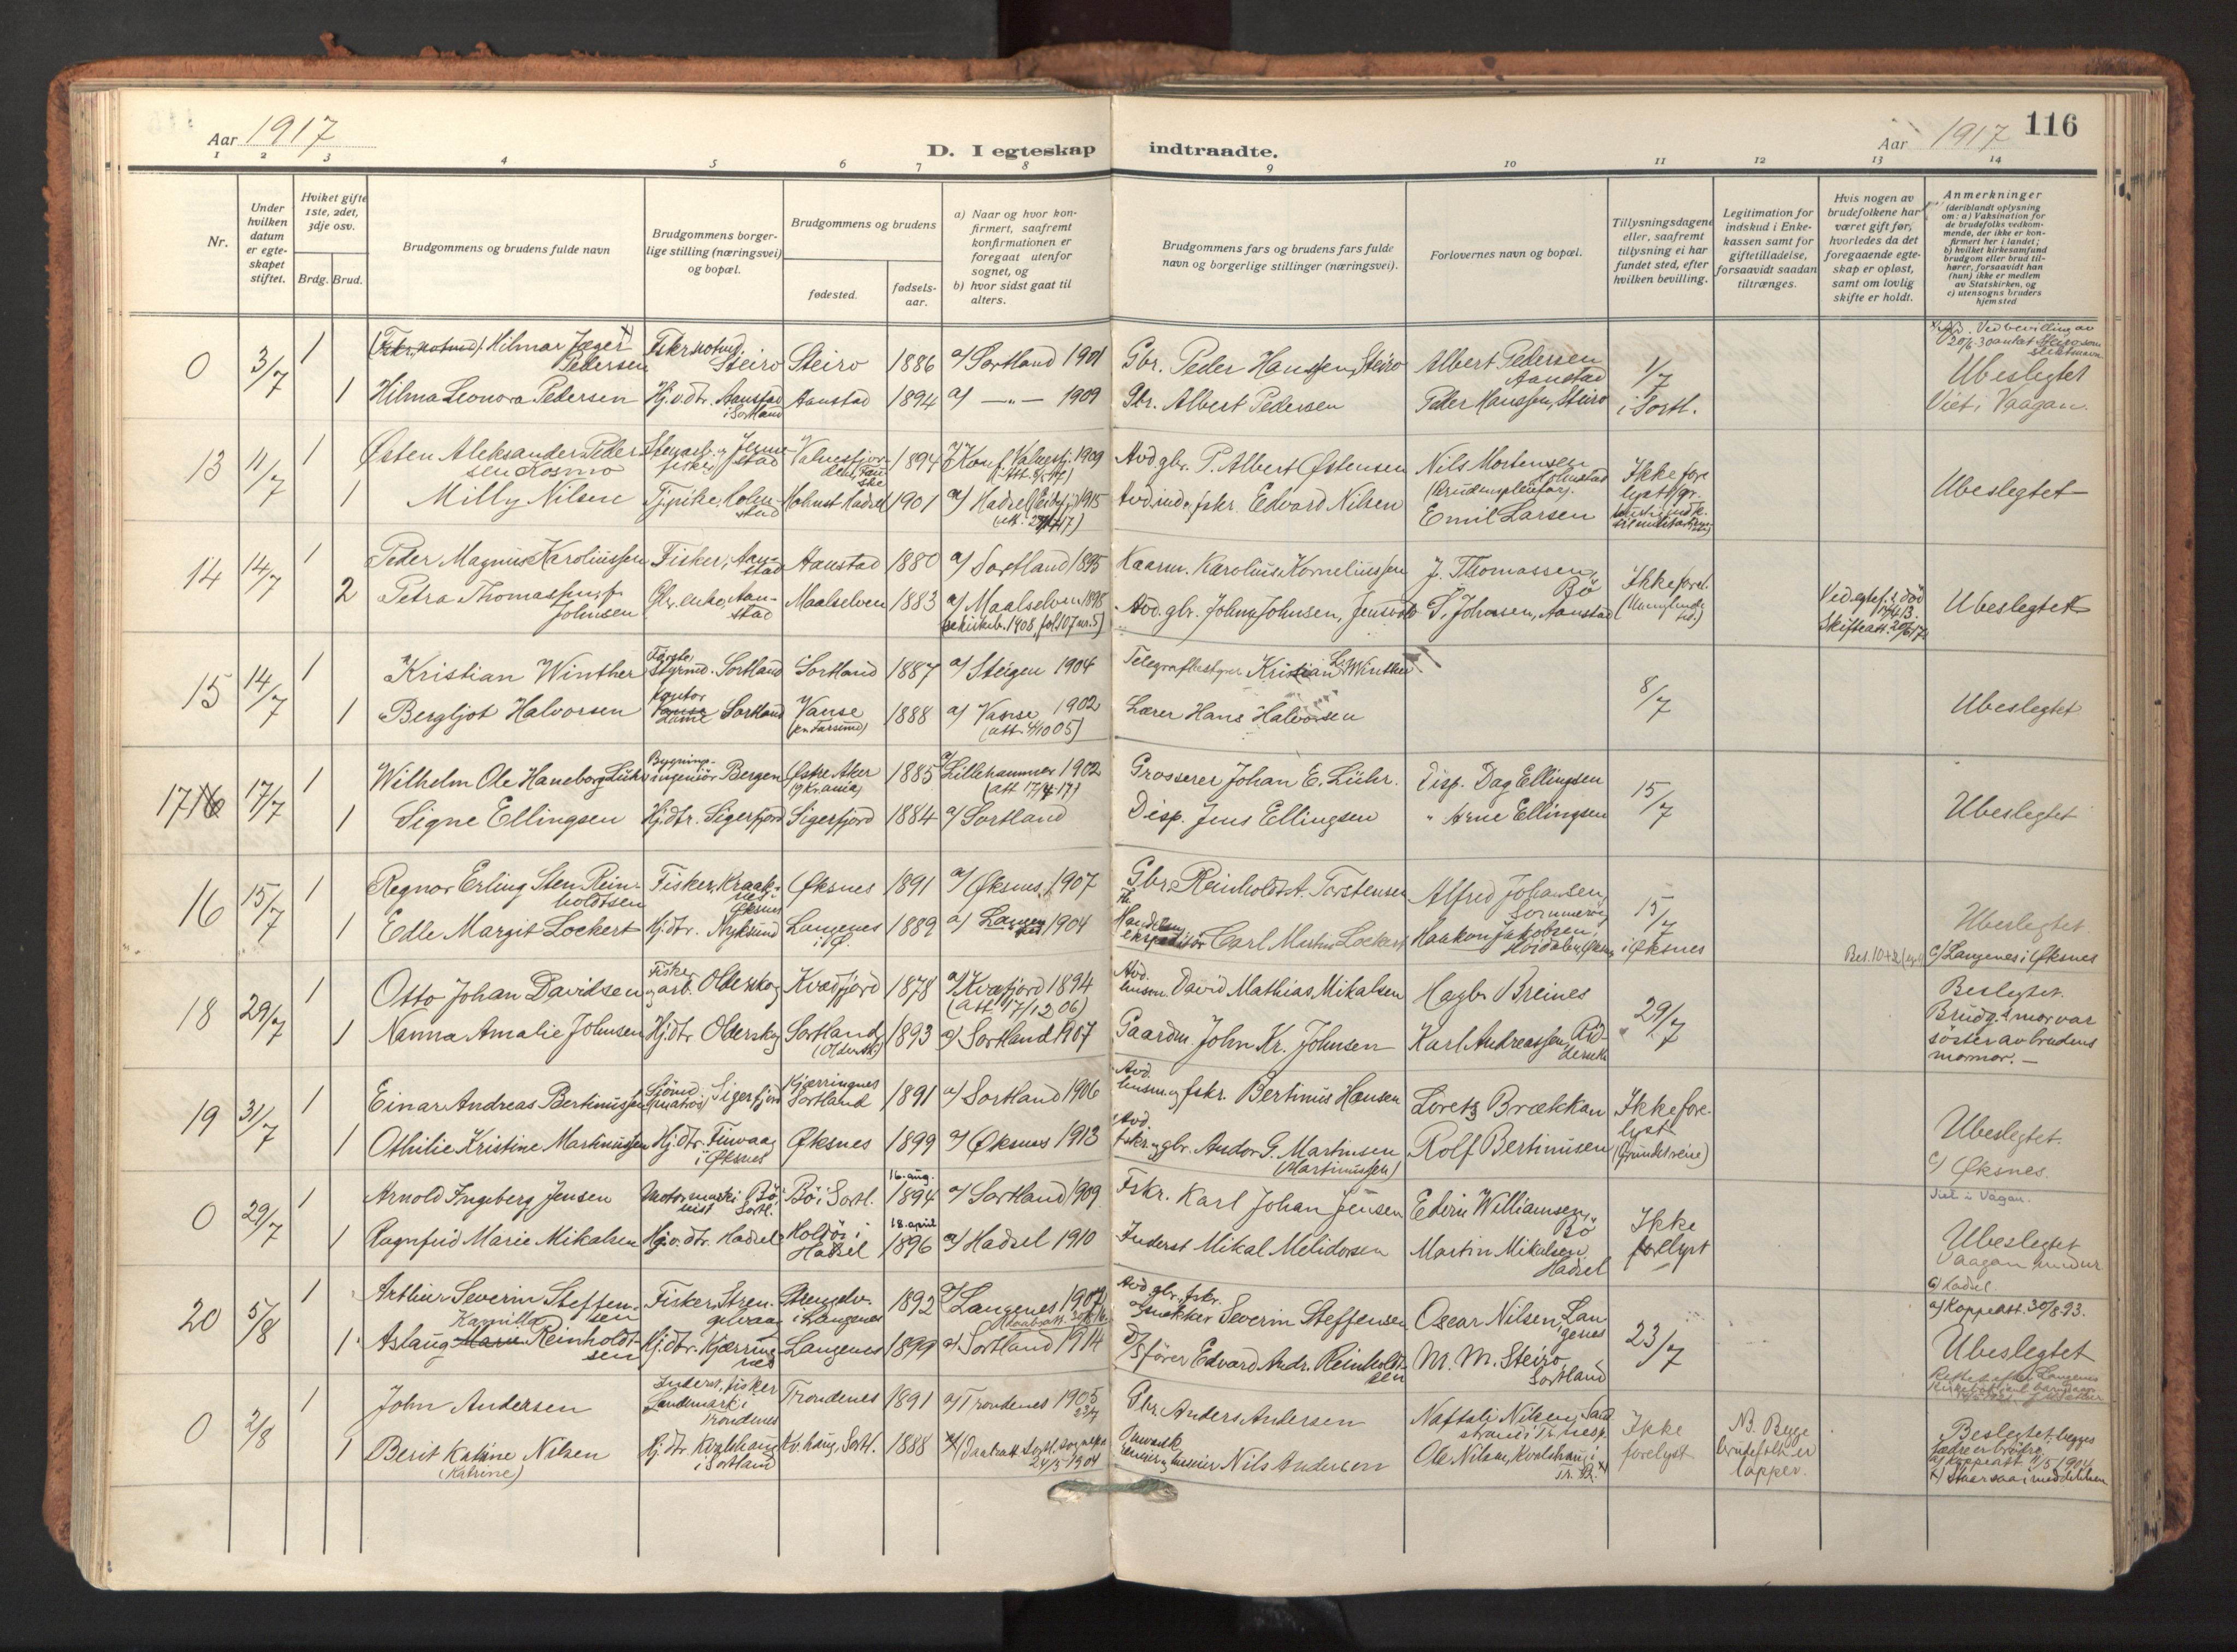 116
Aar 1917
D. I egteskap indtraadte.
Aar 1917
1 2 3 4 5 6 7 8 9 10 11 12 13 14
Nr.
Under hvilken datum er egteskapet stiftet.
Hviket gifte 1ste, 2det, 3dje osv.
Brdg. Brud.
Brudgommens og brudens fulde navn
Brudgommens borgerlige stilling (næringsvei) og bopæl.
Brudgommens og brudens
fødested.
fødselsaar.
a) Naar og hvor konfirmert, saafremt konfirmationen er foregaat utenfor sognet, og
b) hvor sidst gaat til alters.
Brudgommens fars og brudens fars fulde navn og borgerlige stillinger (næringsvei).
Forlovernes navn og bopæl.
Tillysningsdagene eller, saafremt tillysning ei har fundet sted, efter hvilken bevilling.
Legitimation for indskud i Enkekassen samt for giftetilladelse, forsaavidt saadan tiltrænges.
Hvis nogen av brudefolkene har været gift før, hvorledes da det foregaaende egteskap er opløst, samt om lovlig skifte er holdt.
Anmerkninger (deriblandt oplysning om: a) Vaksination for de brudefolks vedkommende, der ikke er konfirmert her i landet; b) hvilket kirkesamfund brudgom eller brud tilhører, forsaavidt han (hun) ikke er medlem av Statskirken, og c) utensogns bruders hjemsted
0 3/7 1 Hilmar Jæger Pedersen Steiro Steiro 1886 a) Sortland 1901 Gbr. Peder Hanssen, Steiro Albert Pedersen Aanstad 1/7 i Sortl. Ubeslegtet
1 Hilma Leonora Pedersen Hj.v.dtr. Aanstad i Sortland Aanstad 1894 a) —"— 1909 Gbr. Albert Pedersen Peder Hanssen, Steiro Viet i Vaagan.
13 11/7 1 Østen Aleksander Pedersen Kosmo 1894 1909 Avd gbr. P. Albert Østensen Nils Mortensen Holmstad Ikke forelyst Ubeslegtet
1 Milly Nilsen Tj.pike, Holmstad 1901 a) Hadsel 1915 Avd. ind. og fskr. Edvard Nilsen Emil Larsen
14 14/7 1 Peder Magnus Karoliussen Fisker, Aanstad Aanstad 1880 a) Sortland 1895 Kaarm. Karolius Korneliussen J. Thomassen, Bö Ikke forel. Ubeslegtet
2 Petra Thomassen, f. Johnsen Gbr. enke, Aanstad Maalselven 1883 a) Maalselven 1898 Avd. gbr. Johan Johnsen P. Johnsen, Aanstad Ved egtef.s död 17/4 13. Skifteatt. 20/6 17
15 14/7 1 Kristian Winther Første styrmd. Sortland Sortland 1887 a) Steigen 1904 Telegrafbestyrer Kristian L. Winther 8/7 Ubeslegtet
1 Bergljot Halvorsen Kontordame Sortland Vanse (pr. Farsund) 1888 a) Vanse 1902 (att. 4/10 05) Lærer Hans Halvorsen
17 17/7 1 Wilhelm Ole Haneborg Lühr Bygningsingeniör Bergen Østre Aker (v/ Kr.ania) 1885 a) Lillehammer 1902 (att 17/4 17) Grosserer Johan E. Lühr. Disp. Dag Ellingsen 15/7 Ubeslegtet
1 Signe Ellingsen Hj.dtr. Sigerfjord Sigerfjord 1884 a) Sortland Disp. Jens Ellingsen " Arne Ellingsen
16 15/7 1 Regnor Erling Sten Reinholdtsen Fisker, Kraaknes Øksnes Øksnes 1891 a) Øksnes, 1907 Gbr. Reinholdt A. Torstensen Alfred Johansen 15/7 i Øksnes Ubeslegtet.
1 Edle Margit Lockert Hj.dtr. Nyksund Langenes i Ø. 1889 a) Langenes 1904 Carl Martin Lockert Haakon Jakobsen c) Langenes i Øksnes
18 29/7 1 Otto Johan Davidsen Fisker og arb. Olderskog Kvæfjord 1878 a) Kvæfjord 1894 (att. 17/12 06) Avd. husm. David Mathias Mikalsen Hagb. Breines 29/7 Beslegtet. Brudg.s mor var söster av brudens mormor. —
1 Nanna Amalie Johnsen Hj.dtr Olderskog Sortland (Oldersk.) 1893 a) Sortland 1907 Gaardm. John Kr. Johnsen Karl Andreassen
19 31/7 1 Einar Andreas Bertinussen Sigerfjord Kjærringnes Sortland 1891 a) Sortland 1906 Avd. husm. og fskr. Bertinus Hansen Lorentz Brækkan Ikke forelyst Ubeslegtet.
1 Othilie Kristine Martinussen Hj.dtr. Finvaag i Øksnes Øksnes 1899 a) Øksnes 1913 Avd. fskr. og gbr. Andor G. Martinsen (Martinussen) Rolf Bertinusen c) Øksnes.
0 29/7 1 Arnold Ingeberg Jensen Motormaskinist Bö i Sortl. Bö i Sortl. 16. aug. 1894 a) Sortland 1909 Fskr. Karl Johan Jensen Edvin Williamsen, Bö Ikke forelyst Viet i Vagan.
1 Ragnfrid Marie Mikalsen Hj.v.dtr. Hadsel Holdö i Hadsel 18. april 1896 a) Hadsel 1910 Inderst Mikal Melidorsen Martin Mikalsen, Hadsel Ubeslegtet
20 5/8 1 Arthur Severin Steffensen Fisker, Strengelvaag Strengelv. i Langenes 1892 a) Langenes 1907 Avd gbr., fskr. og snekker Severin Steffensen Oscar Nilsen, Langenes 23/7 c) Hadsel. a) Koppeatt. 30/8 93.
1 Aslaug Kamilla Reinholdtsen Hj.dtr. Kjærringnes Langenes 1899 a) Sortland 1914 D/S förer Edvard Andr. Reinholdtsen M. M. Steiro, Sortland Ubeslegtet
0 2/8 1 John Andersen Inderst, fisker Sandemark i Trondenes Trondenes 1891 a) Trondenes 1905 Gbr. Anders Andersen Naftali Nilsen Ikke forelyst NB. Begge brudefolk er lapper. Beslegtet, begges fædre er brödre.
1 Berit Katrine Nilsen (Katrine) Hj.dtr Kvalshaug i Sortland Kv.haug, Sortl. 1888 24/5 1904 Nils Andersen Ole Nilsen, Kvalshaug a) Koppeatt 11/5 1904